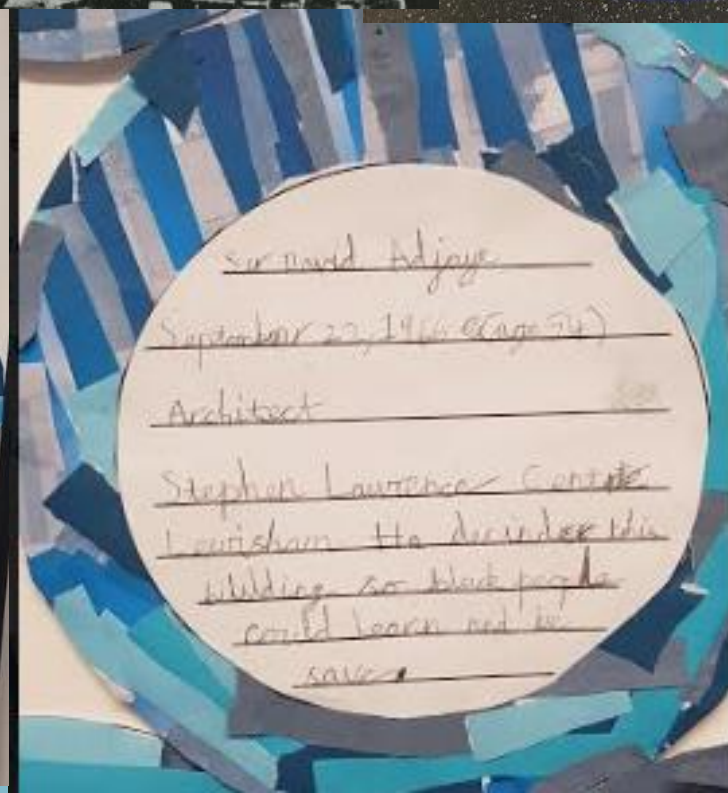 Sir David Adjaye
September 22, 1966 (age 54)
Architect
Stephen Lawrence Centre
Lewisham He this
building so black people
could learn and be
save.